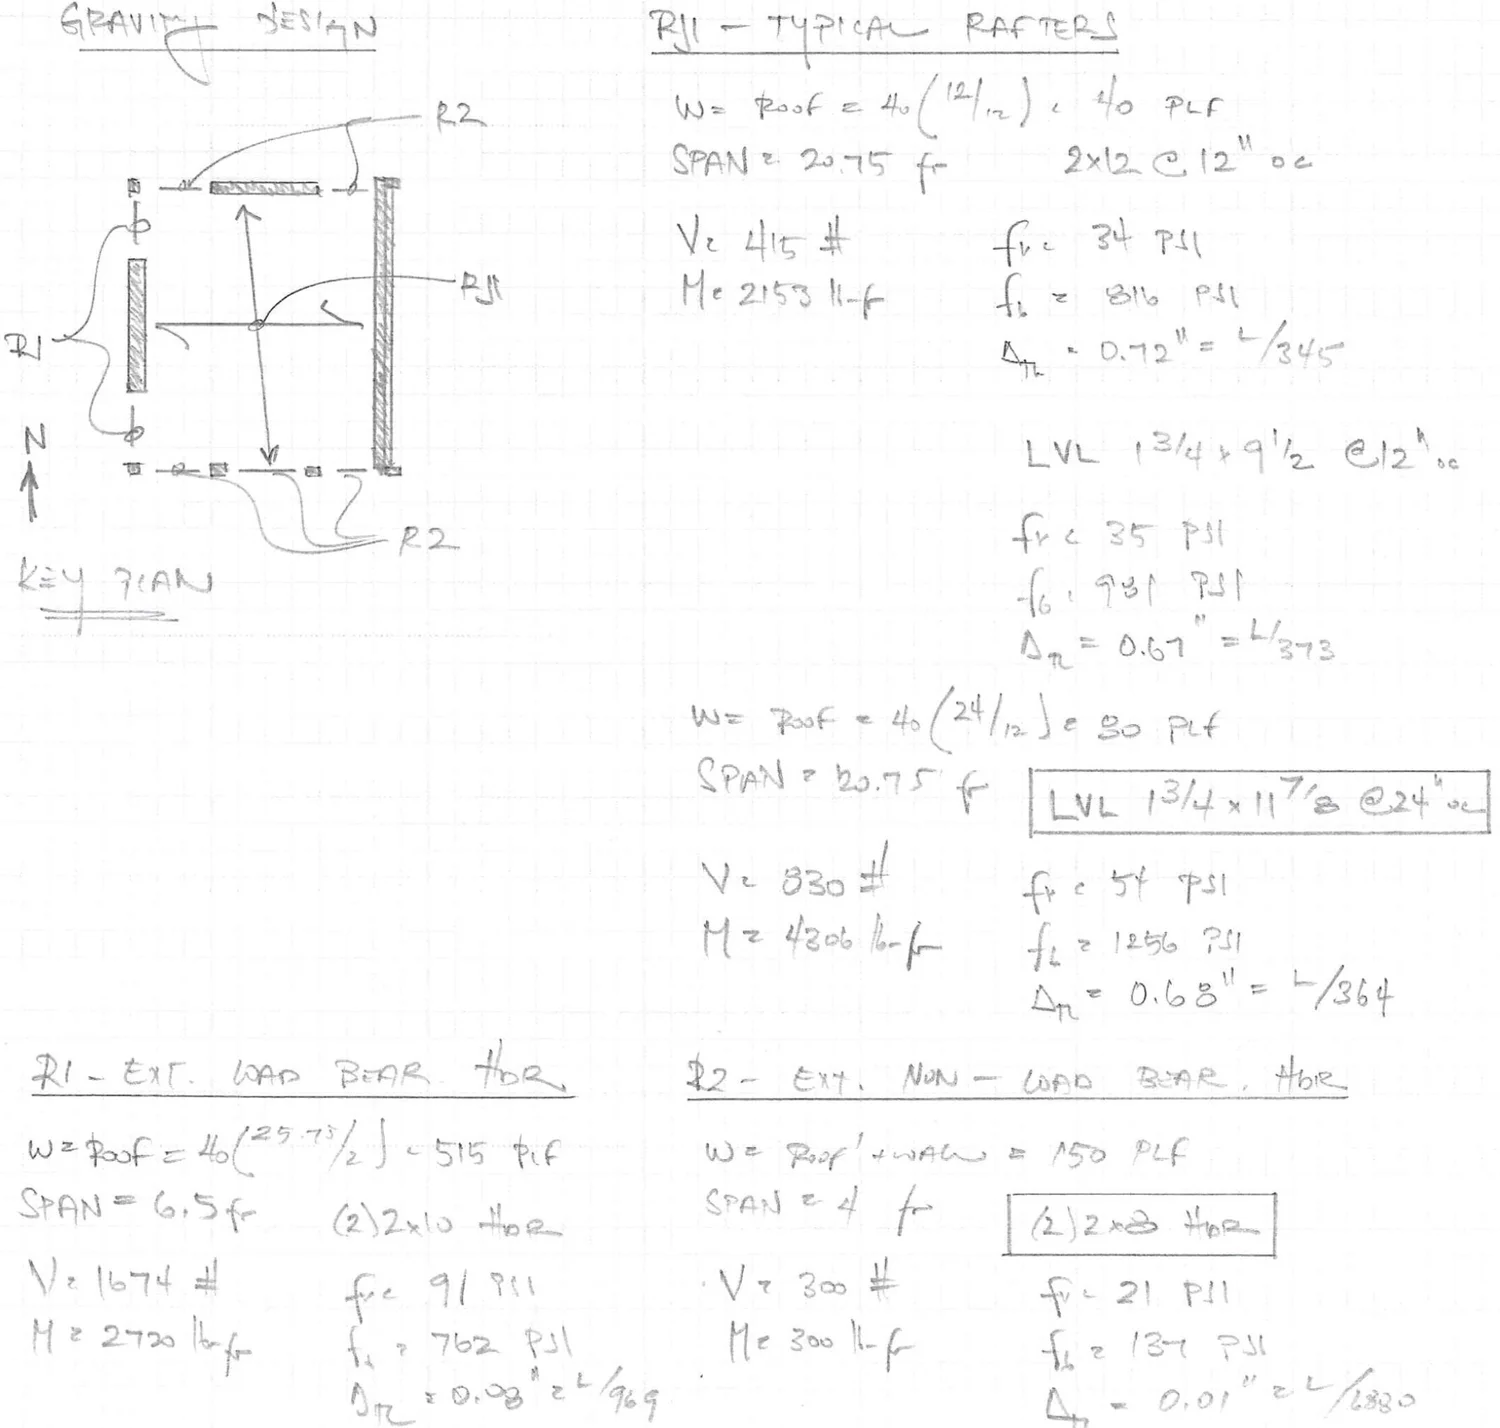 GRAVITY DESIGN
R2
RJ1
R1
N
R2
KEY PLAN
RJ1 - TYPICAL RAFTERS
W = ROOF = 40 (12/12) = 40 PLF
SPAN = 20.75 FT 2x12 @ 12" OC
V = 415 #
fv = 34 PSI
M = 2153 lb-ft
fb = 816 PSI
ΔTL = 0.72" = L/345
LVL 1 3/4 x 9 1/2 @ 12" OC
fv = 35 PSI
fb = 981 PSI
ΔTL = 0.67" = L/373
W = ROOF = 40 (24/12) = 80 PLF
SPAN = 20.75 FT
LVL 1 3/4 x 11 7/8 @ 24" OC
V = 830 #
fv = 54 PSI
M = 4306 lb-ft
fb = 1256 PSI
ΔTL = 0.68" = L/364
R1 - EXT. LOAD BEAR HDR.
W = ROOF = 40 (25.75/2) = 515 PLF
SPAN = 6.5 FT (2) 2x10 HDR
V = 1674 #
fv = 91 PSI
M = 2720 lb-ft
fb = 762 PSI
ΔTL = 0.08" = L/969
R2 - EXT. NON - LOAD BEAR. HDR
W = ROOF + WALL = 150 PLF
SPAN = 4 FT
(2) 2x8 HDR
V = 300 #
fv = 21 PSI
M = 300 lb-ft
fb = 137 PSI
ΔTL = 0.01" = L/6880